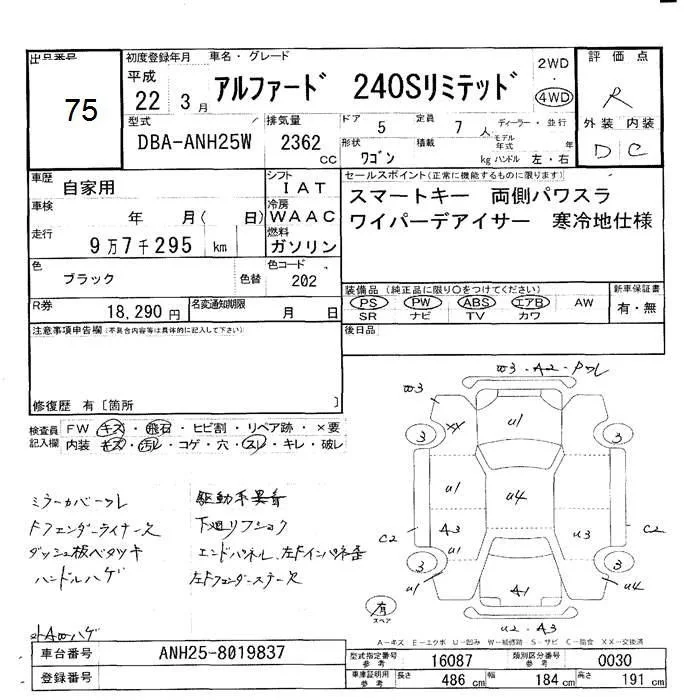 出品番号
75
初度登録年月
平成
22 3月
車名・グレード
アルファード 240Sリミテッド
2WD
・
4WD
評価点
R
外装 内装
D C
型式
DBA-ANH25W
排気量
2362 cc
ドア
5
定員
7 人
ディーラー・並行
モデル年式 年
形状
ワゴン
積載
kg
ハンドル 左・右
車歴
自家用
シフト
IAT
セールスポイント(正常に機能するものに限ります)
スマートキー 両側パワスラ
ワイパーデアイサー 寒冷地仕様
車検
年 月( 日)
冷房
WAAC
走行
9万7千295 km
燃料
ガソリン
色
ブラック
色替
色コード
202
装備品(純正品に限り○をつけてください)
PS PW ABS エアB AW
SR ナビ TV カワ
新車保証書
有・無
R券
18,290円
名変通知期限
月 日
後日品
注意事項申告欄(不具合内容等は具体的に記入して下さい)
修復歴 有〔箇所 〕
検査員
記入欄
FW・キズ・飛石・ヒビ割・リペア跡・×要
内装・キズ・汚レ・コゲ・穴・スレ・キレ・破レ
ミラーカバーワレ
Fフェンダーライナーヌケ
ダッシュ板ベタツキ
ハンドルハゲ
下廻リフショク
W3・A2・ワレ
W3
XX
U1
3
3
U1
U4
A3
U3
C2
C2
U1
3
3
U1
A1
U4
U2・A3
有
スペア
A-キズ E-エクボ U-凹み W-補修跡 S-サビ C-腐食 XX-交換済
車台番号
ANH25-8019837
登録番号
型式指定番号
参考
16087
類別区分番号
参考
0030
車庫証明用
参考
長さ
486 cm
幅
184 cm
高さ
191 cm